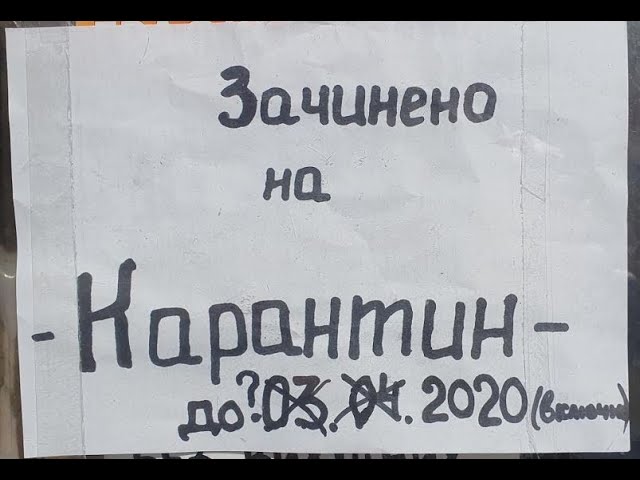 Зачинено
на
- Карантин -
до ? 03.04.2020 (включно)